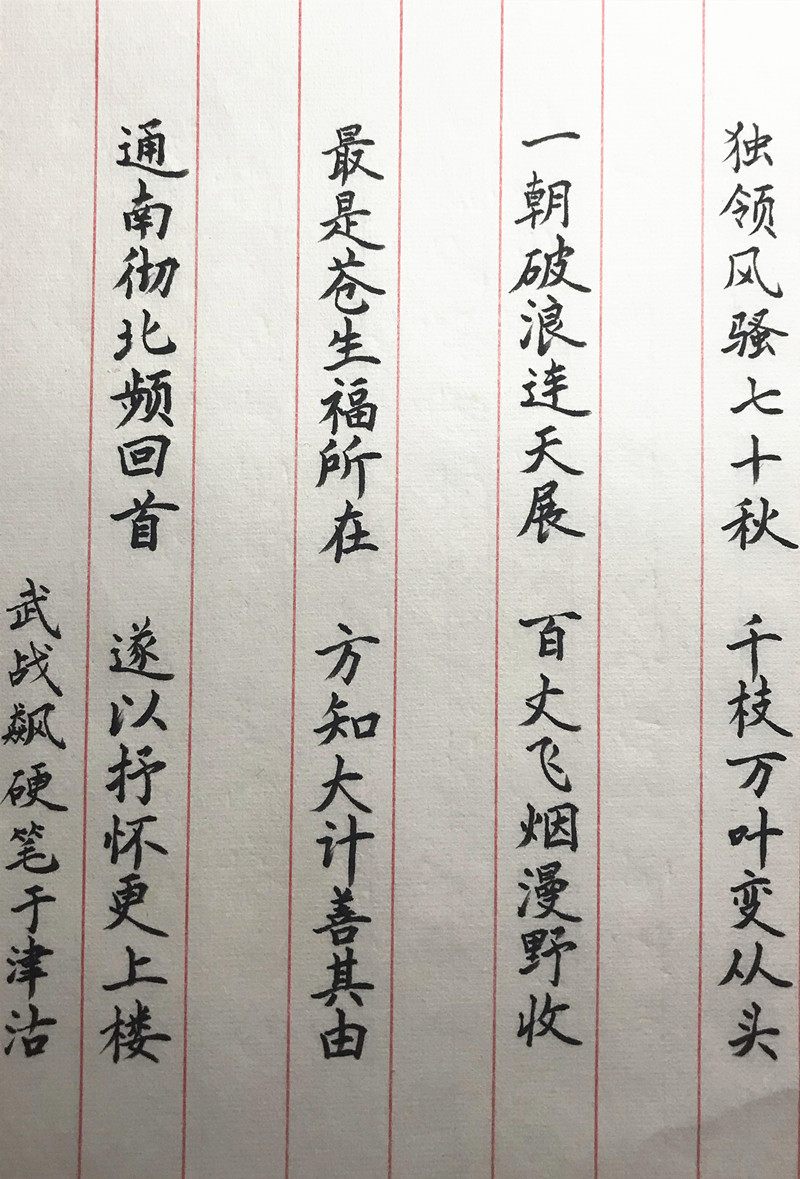 独领风骚七十秋 千枝万叶变从头
一朝破浪连天展 百丈飞烟漫野收
最是苍生福所在 方知大计善其由
通南彻北频回首 遂以抒怀更上楼
武战飙硬笔于津沽